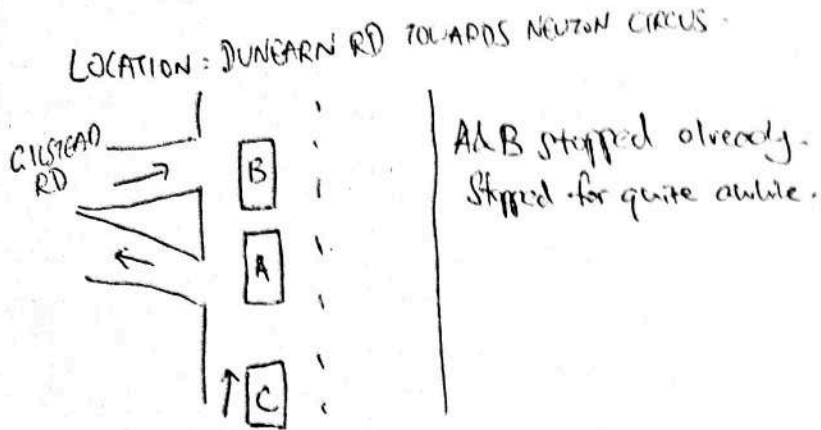 LOCATION: DUNEARN RD TOWARDS NEWTON CIRCUS.
GILSTEAD
RD
B
A
C
A&B stopped already.
Stopped for quite awhile.